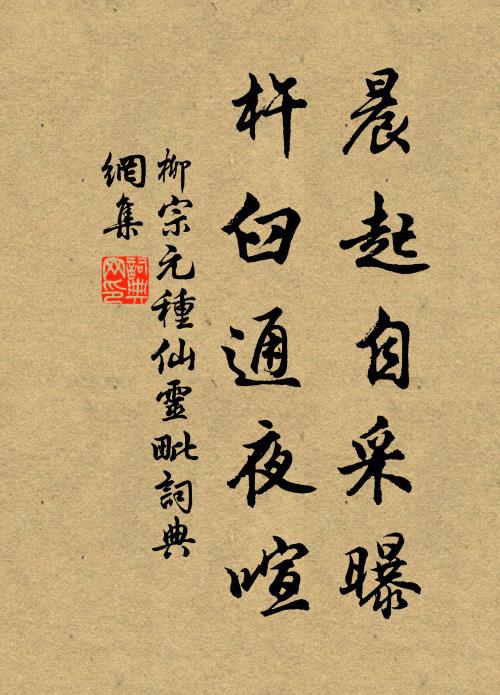 晨起自采曝
杵臼通夜喧
柳宗元種仙靈毗詞典
網集
詞典
网印